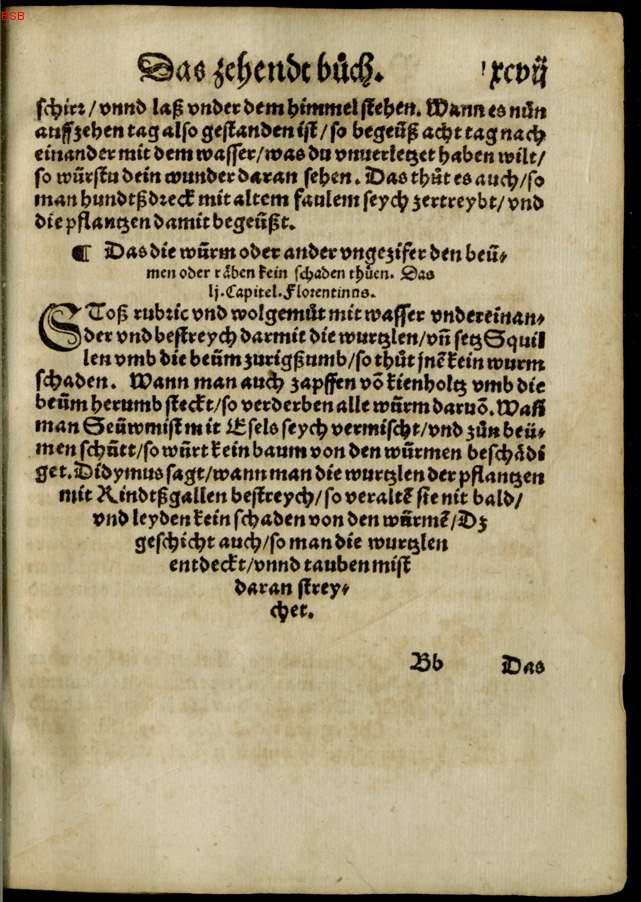 BSB
Das zehendt bůch. xcvij
schirr/ vnnd laß vnder dem himmel stehen. Wann es nůn
auff zehen tag also gestanden ist/ so begeüß acht tag nach
einander mit dem wasser/ was du vnuerletzet haben wilt/
so würstu dein wunder daran sehen. Das thůt es auch/ so
man hundtßdreck mit altem faulem seych zertreybt/ vnd
die pflantzen damit begeüßt.
¶ Das die würm oder ander vngezifer den beü-
men oder räben kein schaden thüen. Das
lj. Capitel. Florentinus.
Stoß rubric vnd wolgemůt mit wasser vndereinan-
der vnd bestreych darmit die wurtzlen/ vñ setz Squil
len vmb die beüm zurigßumb/ so thůt jnẽ kein wurm
schaden. Wann man auch zapffen võ kienholtz vmb die
beüm herumb steckt/ so verderben alle würm daruõ. Wañ
man Seüwmist mit Esels seych vermischt/ vnd zůn beü-
men schütt/ so würt kein baum von den würmen beschädi
get. Didymus sagt/ wann man die wurtzlen der pflantzen
mit Rindtßgallen bestreych/ so veraltẽ sie nit bald/
vnd leyden kein schaden von den würmẽ/ Dz
geschicht auch/ so man die wurtzlen
entdeckt/ vnnd tauben mist
daran strey-
chet.
Bb Das